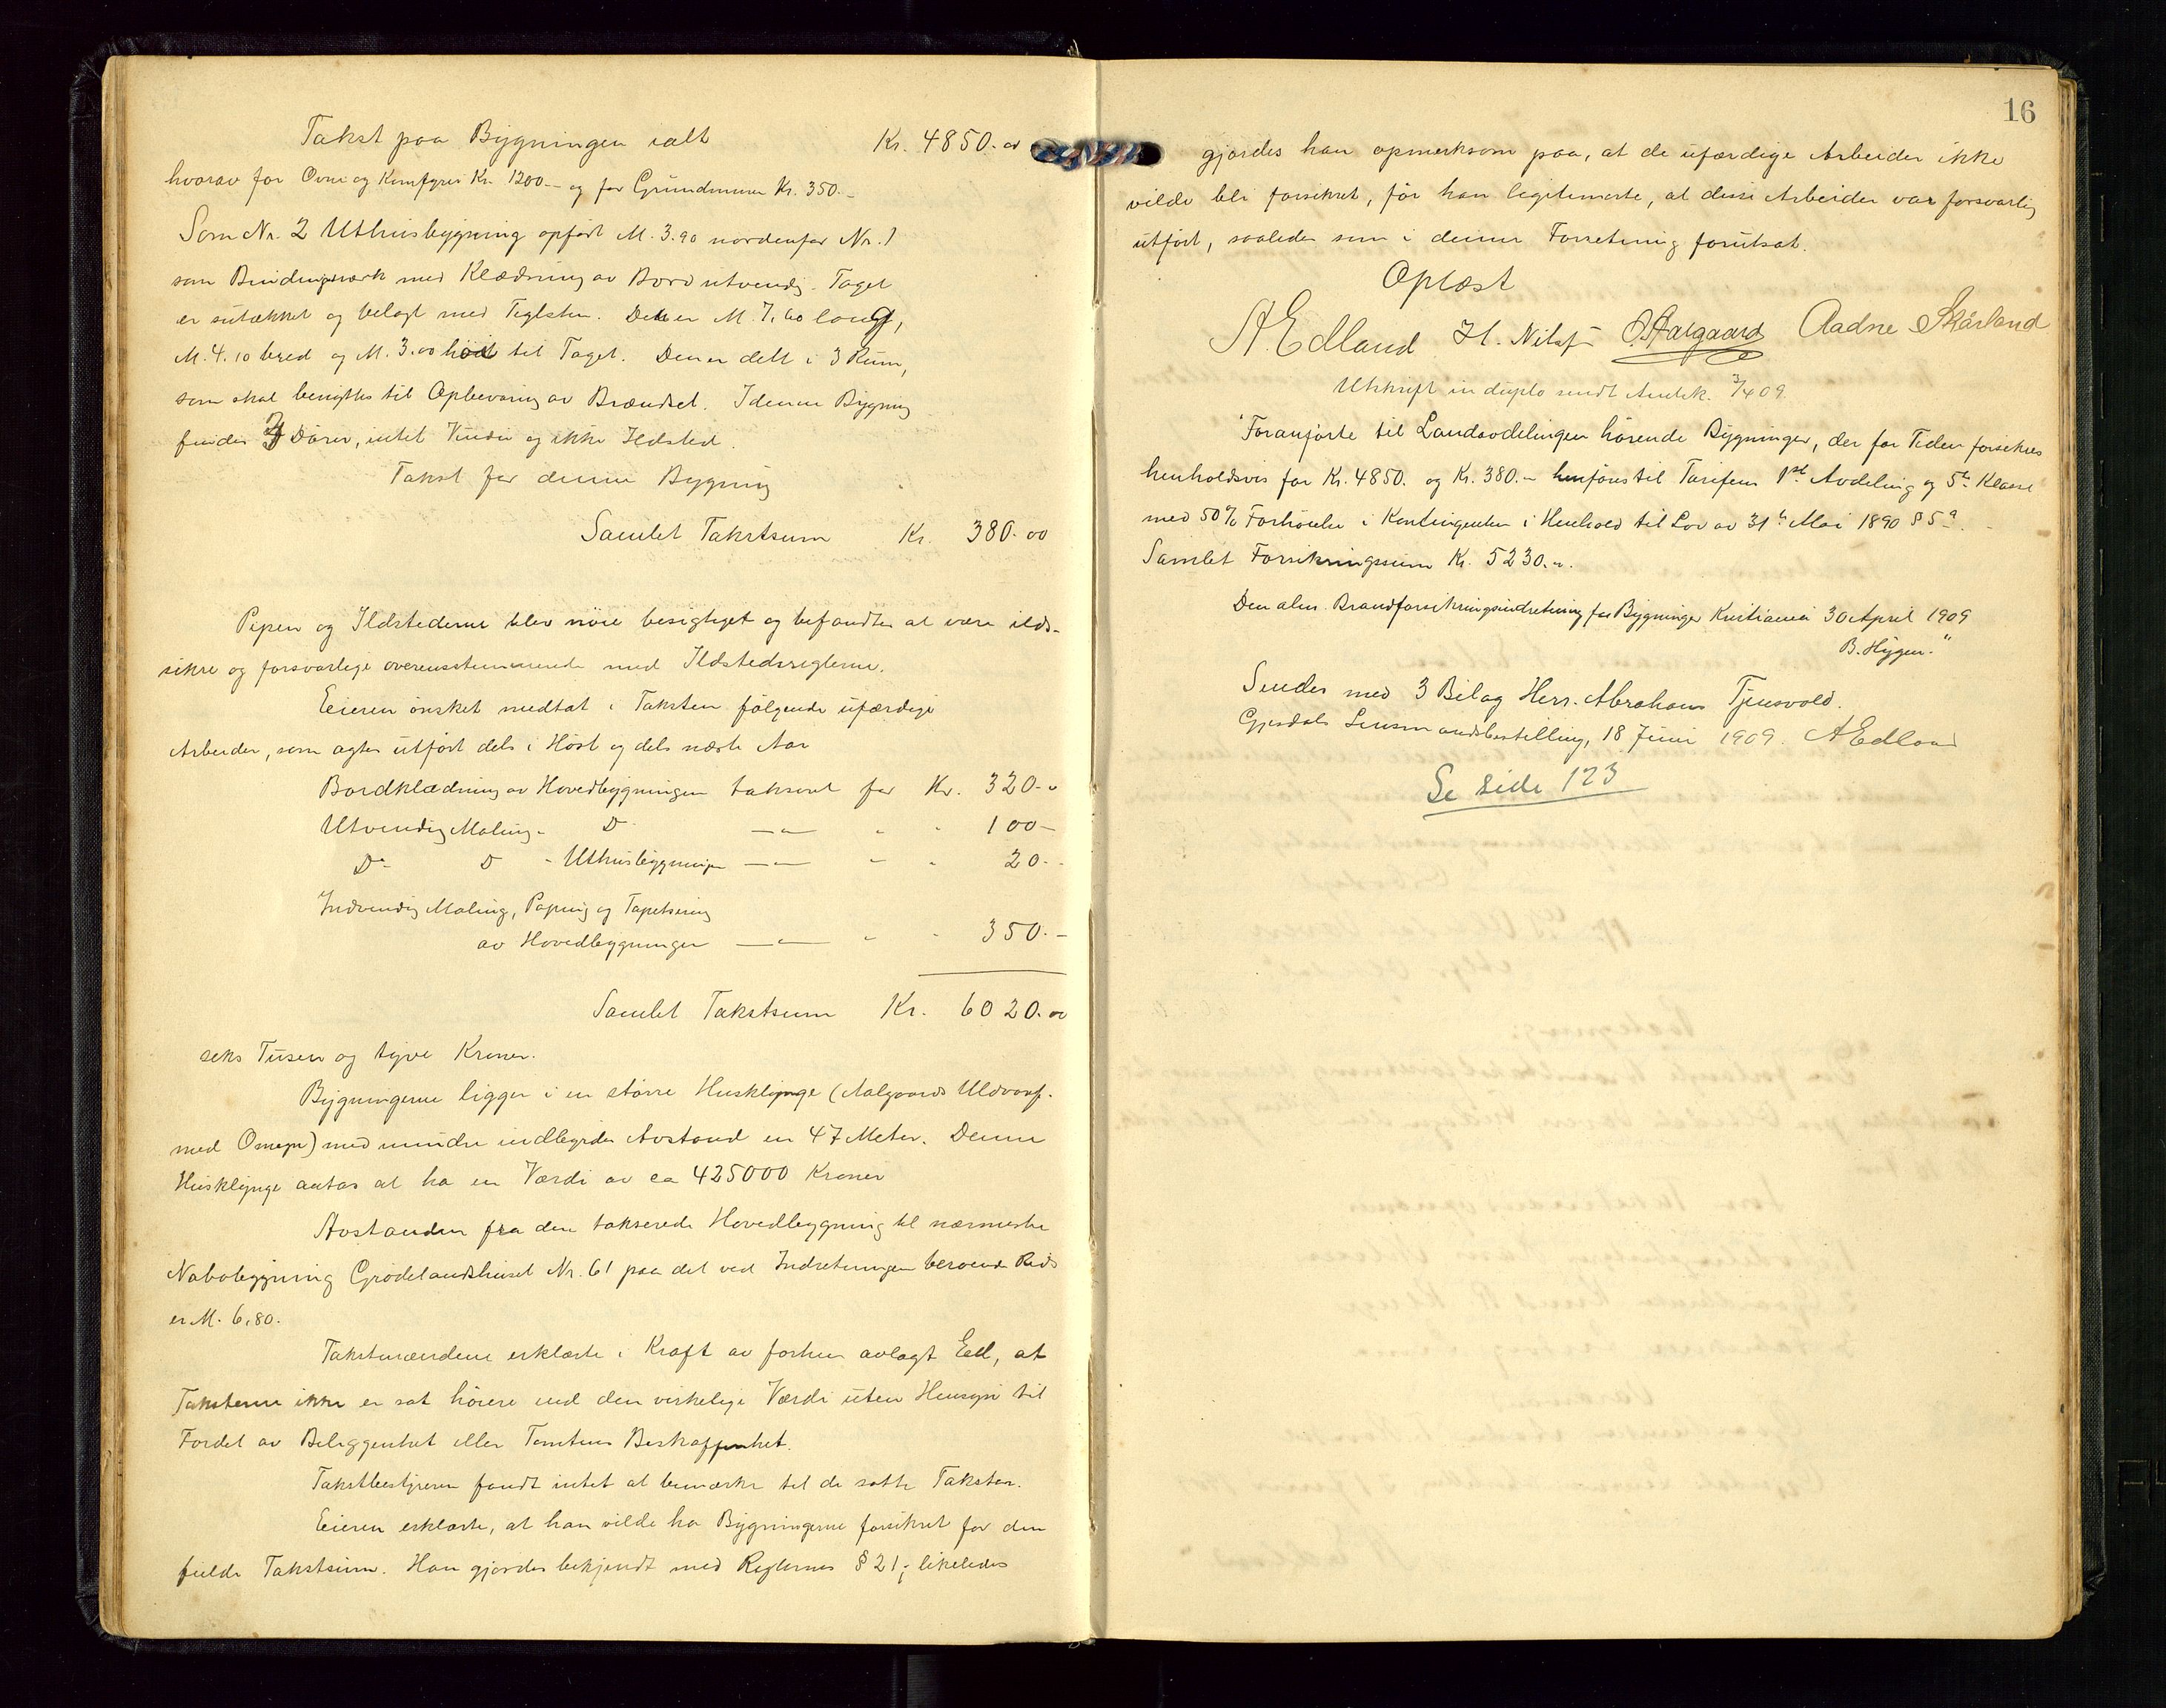 Takst paa Bygningen ialt Kr. 4850.00
hvorav for Ovne og Komfyrer Kr. 1200.- og for Grundmuren Kr. 350.-
Som Nr. 2 Uthusbygning opført M. 3.90 nordenfor Nr. 1
som Bindingsværk med Klædning av Bord utvendig. Taget
er sutækket og belagt med Teglsten. Den er M. 7.60 lang,
M. 4.10 bred og M. 3.00 høi til Taget. Den er delt i 3 Rum,
som skal benyttes til Opbevaring av Brændsel. I denne Bygning
findes 3 Dører, intet Vindu og ikke Ildsted.
Takst for denne Bygning
Samlet Takstsum Kr. 380.00
Pipen og Ildstederne blev nøie besigtiget og befandtes at være ild-
sikre og forsvarlige overensstemmende med Ildstedsreglerne.
Eieren ønsket medtat i Taksten følgende ufærdige
Arbeider, som agtes utført dels i Høst og dels næste Aar
Bordklædning av Hovedbygningen takseret for Kr. 320.-
Utvendig Maling - Do - " - " " 100 -
Do - Do - Uthusbygningen - " - " " 20.-
Indvendig Maling, Paping og Tapetsering
av Hovedbygningen - " - " " 350.-
Samlet Takstsum Kr. 6020.00
seks Tusen og tyve Kroner.
Bygningerne ligger i en større Husklynge (Aalgaards Uldvarf.
med Omegn) med mindre indbyrdes Avstand en 47 Meter. Denne
Husklynge antas at ha en Værdi av ca 425000 Kroner
Avstanden fra den takserede Hovedbygning til nærmeste
Nabobygning Grødelandshuset Nr. 61 paa det ved Indretningen beroende Rids
er M. 6,80.
Takstmændene erklærte i Kraft av forhen avlagt Eed, at
Taksterne ikke er sat høiere end den virkelige Værdi uten Hensyn til
Fordel av Beliggenhet eller Tomtens Beskaffenhet.
Takstbestyreren fandt intet at bemærke til de satte Takster.
Eieren erklærte, at han vilde ha Bygningerne forsikret for den
fulde Takstsum. Han gjordes bekjendt med Reglernes § 21; likeledes
16
gjordes han opmerksom paa, at de ufærdige Arbeider ikke
vilde bli forsikret, før han legitimerte, at disse Arbeider var forsvarlig
utført, saaledes som i denne Forretning forutsat.
Oplæst
A Edland H. Nilsen O. Aalgaard Aadne Skårland
Utskrift in duplo sendt Amtsk. 3/4 09.
"Foranførte til Landavdelingen hørende Bygninger, der for Tiden forsikres
henholdsvis for Kr. 4850. og Kr. 380.- henføres til Tarifens 1ste Avdeling og 5te Klasse
med 50% Forhøielse i Kontingenten i Henhold til Lov av 31te Mai 1890 § 5a.
Samlet Forsikringssum Kr. 5230.-.
Den alm. Brandforsikringsindretning for Bygninger Kristiania 30 April 1909
B. Hygen."
Sendes med 3 Bilag Herr. Abraham Tjensvold.
Gjesdals Lensmandsbestilling, 18 Juni 1909. A Edland
Se side 123